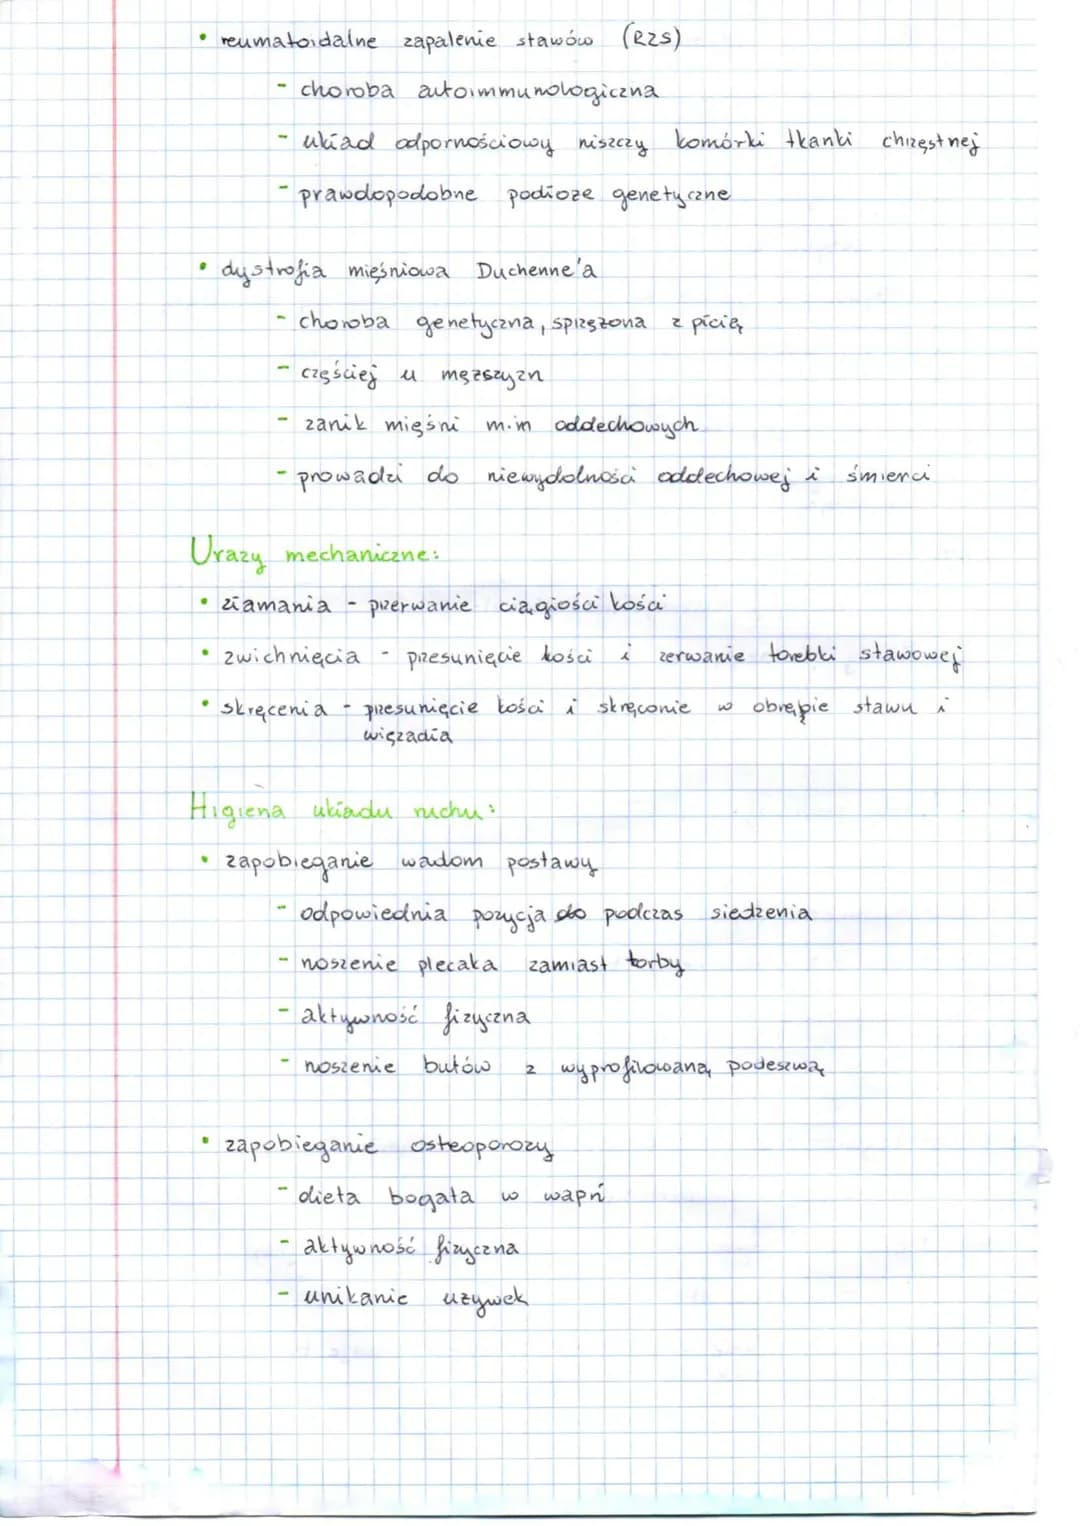 • reumatoidalne zapalenie stawów (RZS)
- choroba autoimmunologiczna
- układ odpornościowy niszczy komórki tkanki chrzęstnej
- prawdopodobne podłoże genetyczne
• dystrofia mięśniowa Duchenne'a
- choroba genetyczna, sprzężona z płcią
- częściej u męższyzn
- zanik mięśni m.in oddechowych
- prowadzi do niewydolności oddechowej i śmierci
Urazy mechaniczne:
• złamania - przerwanie ciągłości kości
• zwichnięcia - przesunięcie kości i zerwanie torebki stawowej
• skręcenia - przesunięcie kości i skręconie w obrębie stawu i
więzadła
Higiena układu ruchu:
• zapobieganie wadom postawy
- odpowiednia pozycja do podczas siedzenia
- noszenie plecaka zamiast torby
- aktywność fizyczna
- noszenie butów z wyprofilowaną podeszwą
• zapobieganie osteoporozy
- dieta bogata w wapń
- aktywność fizyczna
- unikanie używek